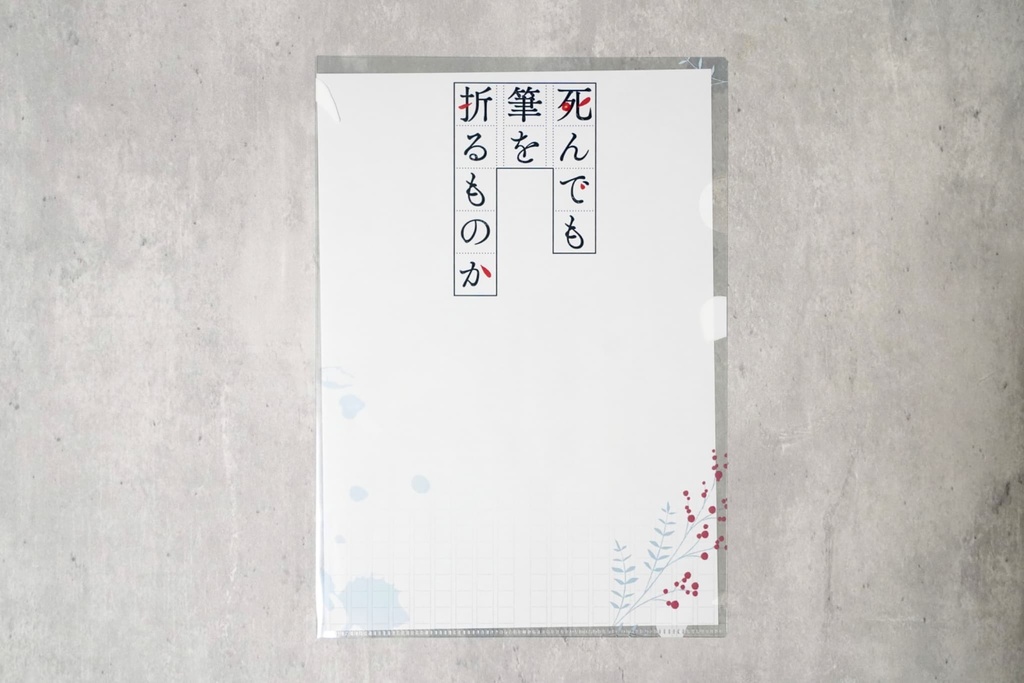 死んでも
筆を
折るものか